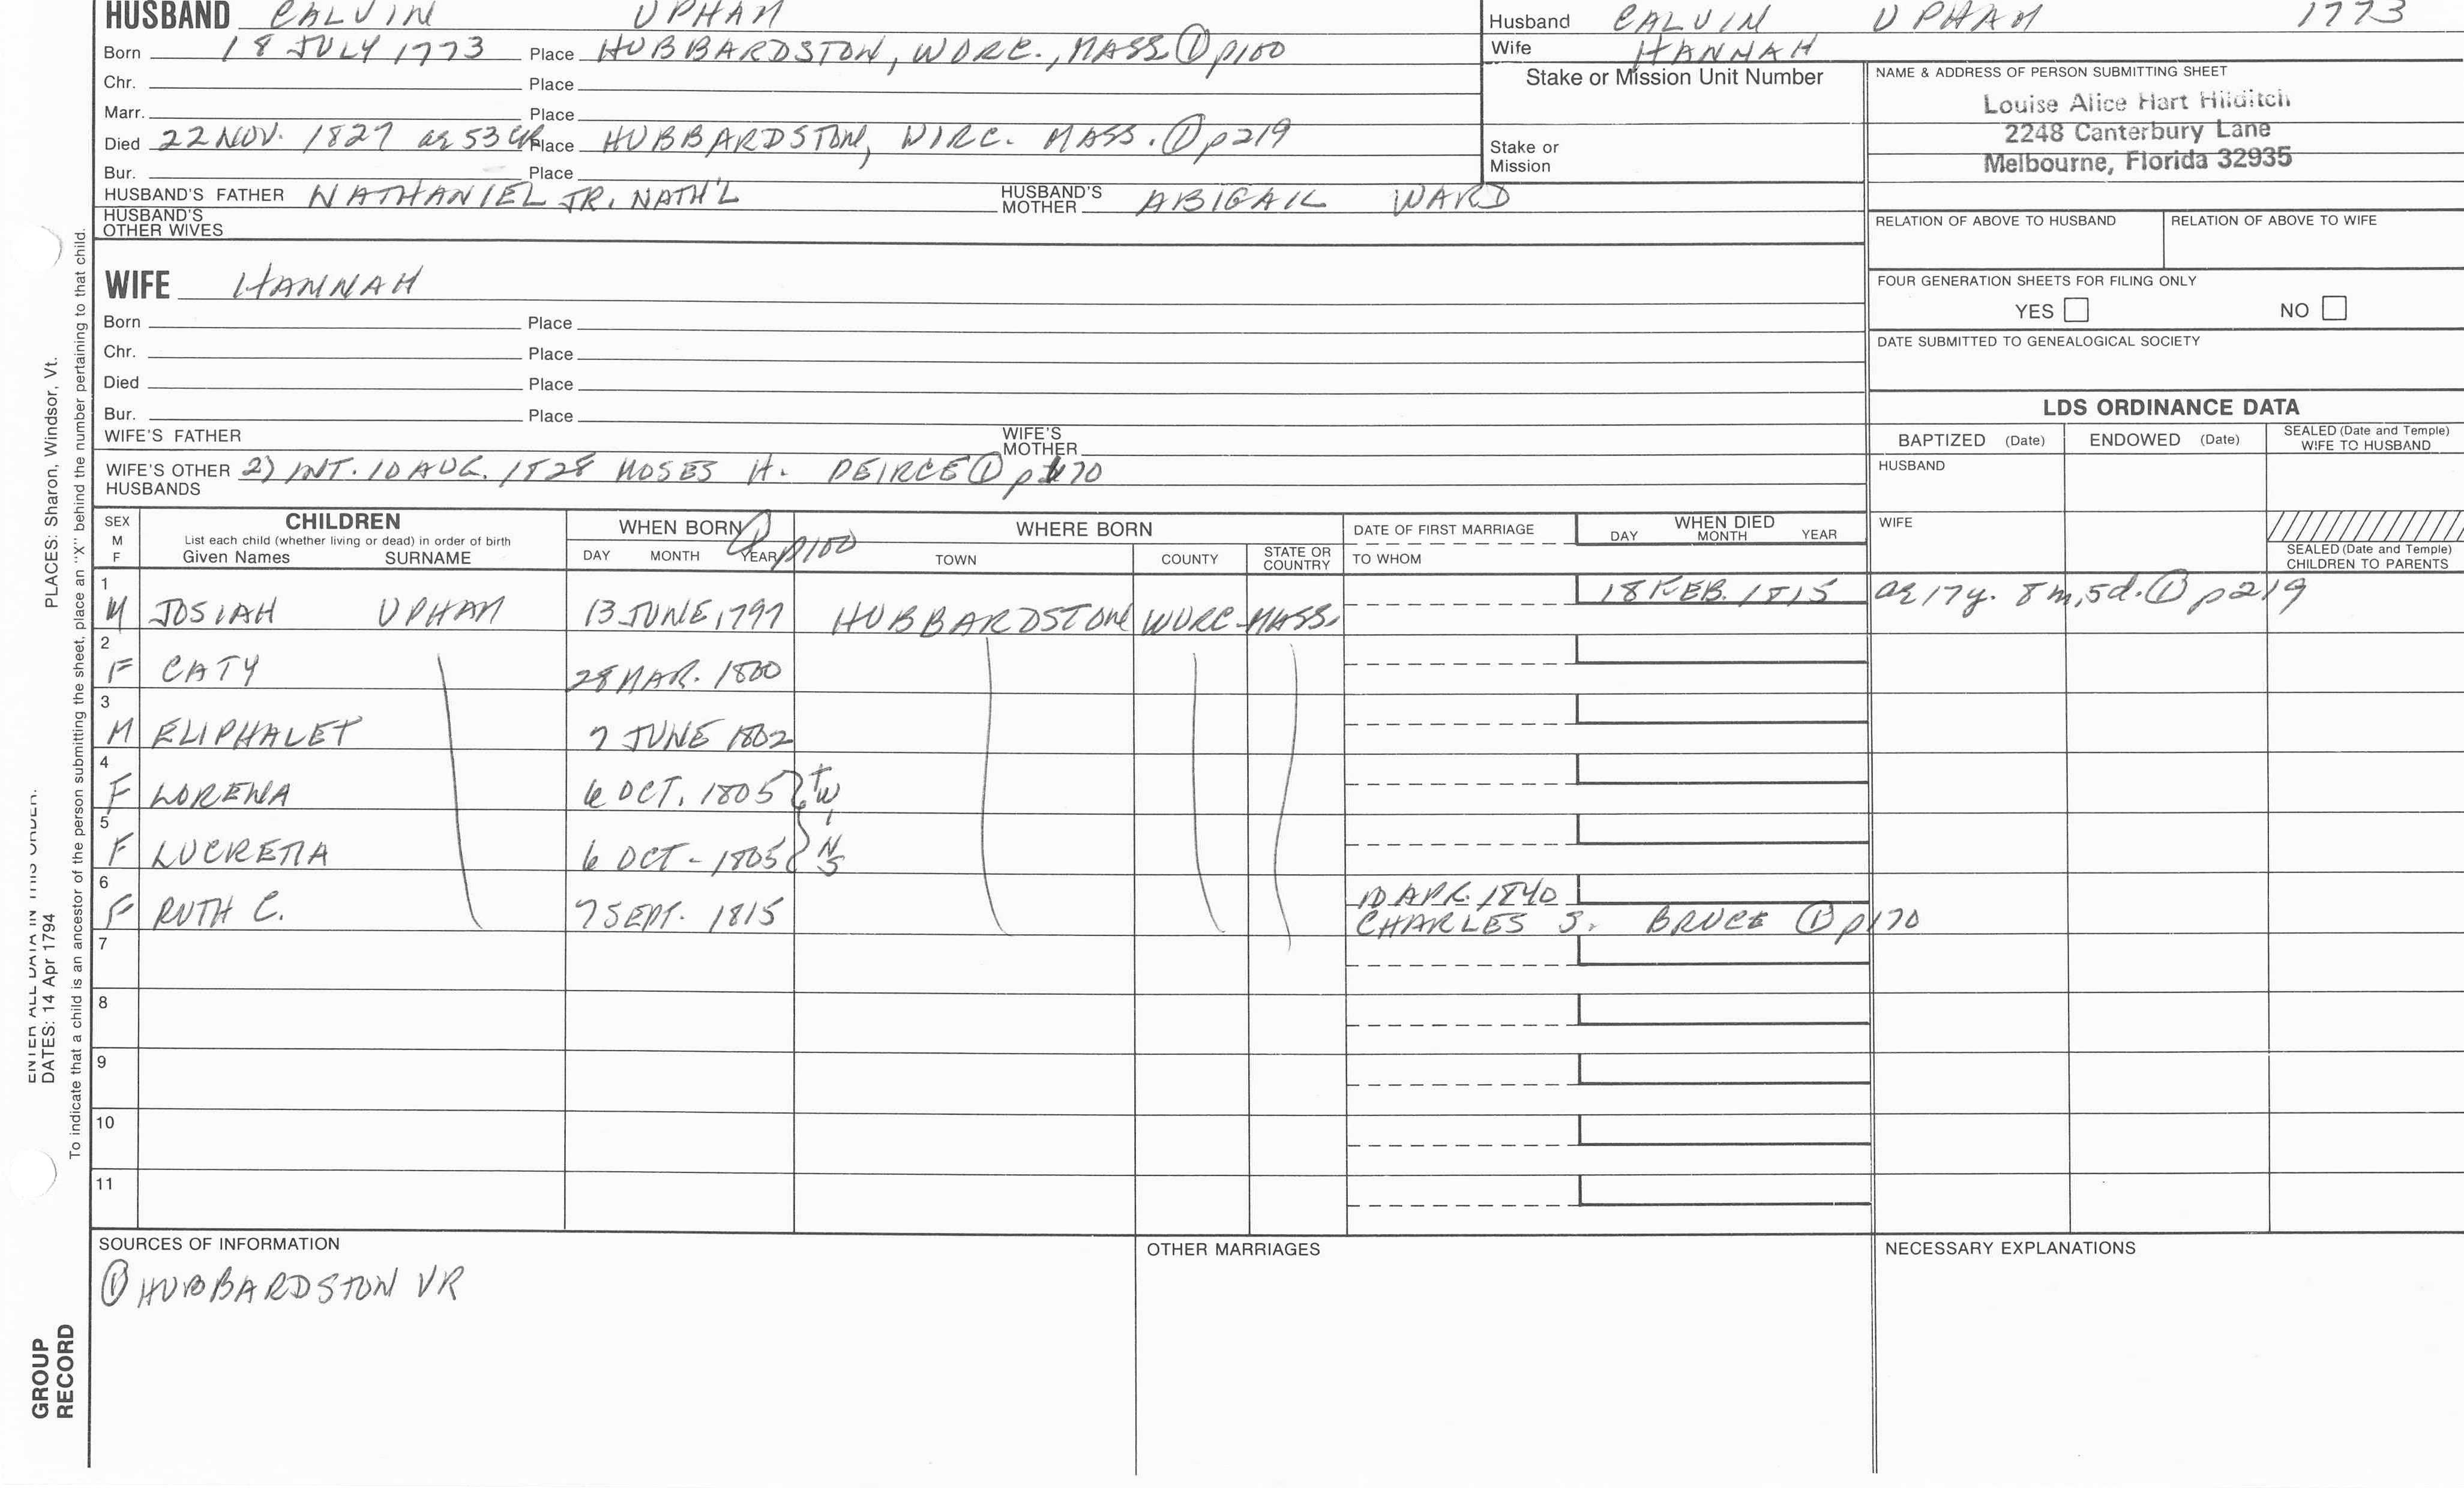 HUSBAND CALVIN UPHAM
Born 18 JULY 1773 Place HUBBARDSTON, WORC., MASS ① p100
Chr. Place
Marr. Place
Died 22 NOV. 1827 ae 53 yr Place HUBBARDSTON, WIRC. MASS. ① p219
Bur. Place
HUSBAND'S FATHER NATHANIEL JR. NATH'L HUSBAND'S MOTHER ABIGAIL WARD
HUSBAND'S OTHER WIVES
Husband CALVIN UPHAM 1773
Wife HANNAH
Stake or Mission Unit Number
Stake or Mission
NAME & ADDRESS OF PERSON SUBMITTING SHEET
Louise Alice Hart Hilditch
2248 Canterbury Lane
Melbourne, Florida 32935
RELATION OF ABOVE TO HUSBAND RELATION OF ABOVE TO WIFE
FOUR GENERATION SHEETS FOR FILING ONLY
YES NO
DATE SUBMITTED TO GENEALOGICAL SOCIETY
WIFE HANNAH
Born Place
Chr. Place
Died Place
Bur. Place
WIFE'S FATHER WIFE'S MOTHER
WIFE'S OTHER HUSBANDS 2) INT. 10 AUG. 1828 MOSES H. PEIRCE ① p170
LDS ORDINANCE DATA
BAPTIZED (Date) ENDOWED (Date) SEALED (Date and Temple) WIFE TO HUSBAND
HUSBAND
WIFE
SEALED (Date and Temple) CHILDREN TO PARENTS
SEX M F CHILDREN List each child (whether living or dead) in order of birth Given Names SURNAME
WHEN BORN ① p100 DAY MONTH YEAR
WHERE BORN TOWN COUNTY STATE OR COUNTRY
DATE OF FIRST MARRIAGE TO WHOM
WHEN DIED DAY MONTH YEAR
1 M JOSIAH UPHAM 13 JUNE 1797 HUBBARDSTON WORC. MASS. 18 FEB. 1815 ae 17y. 8m, 5d. ① p219
2 F CATY 28 MAR. 1800
3 M ELIPHALET 7 JUNE 1802
4 F LORENA 6 OCT. 1805 TW
5 F LUCRETIA 6 OCT - 1805 INS
6 F RUTH C. 7 SEPT. 1815 10 APR. 1840
CHARLES S. BRUCE ① p170
7
8
9
10
11
SOURCES OF INFORMATION
① HUBBARDSTON VR
OTHER MARRIAGES
NECESSARY EXPLANATIONS
ENTER ALL DATA IN THIS ORDER:
DATES: 14 Apr 1794
PLACES: Sharon, Windsor, Vt.
To indicate that a child is an ancestor of the person submitting the sheet, place an "X" behind the number pertaining to that child.
GROUP
RECORD